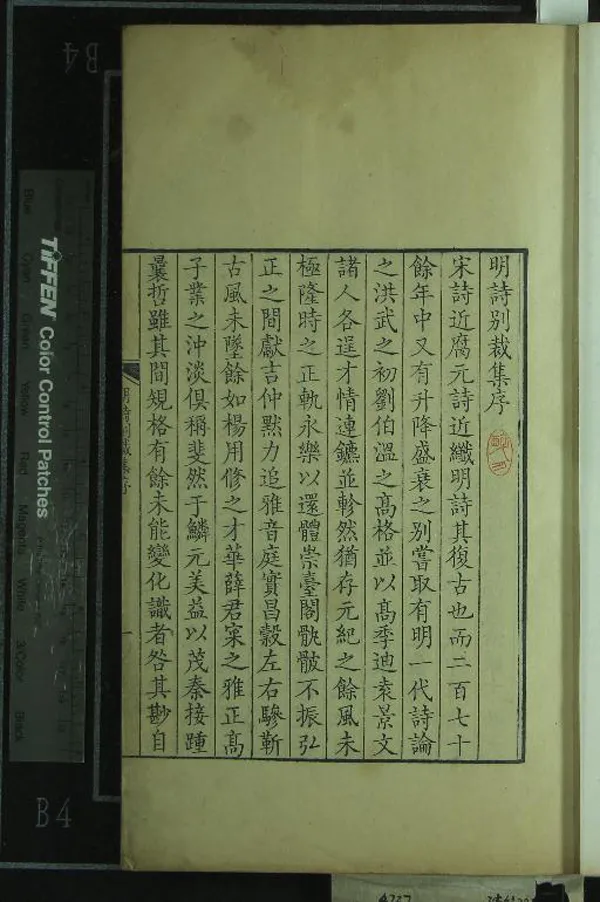 明詩別裁集序
宋詩近腐元詩近纖明詩其復古也而二百七十
餘年中又有升降盛衰之別嘗取有明一代詩論
之洪武之初劉伯溫之高格並以高季迪袁景文
諸人各逞才情連鑣並軫然猶存元紀之餘風未
極隆時之正軌永樂以還體崇臺閣骫骳不振弘
正之間獻吉仲默力追雅音庭實昌穀左右驂靳
古風未墜餘如楊用修之才華薛君寀之雅正高
子業之沖淡俱稱斐然于鱗元美益以茂秦接踵
曩哲雖其間規格有餘未能變化識者咎其尠自
明詩別裁集序
一
B4
TIFFEN Color Control Patches
Blue
Cyan
Green
Yellow
Red
Magenta
White
3/Color
Black
B4